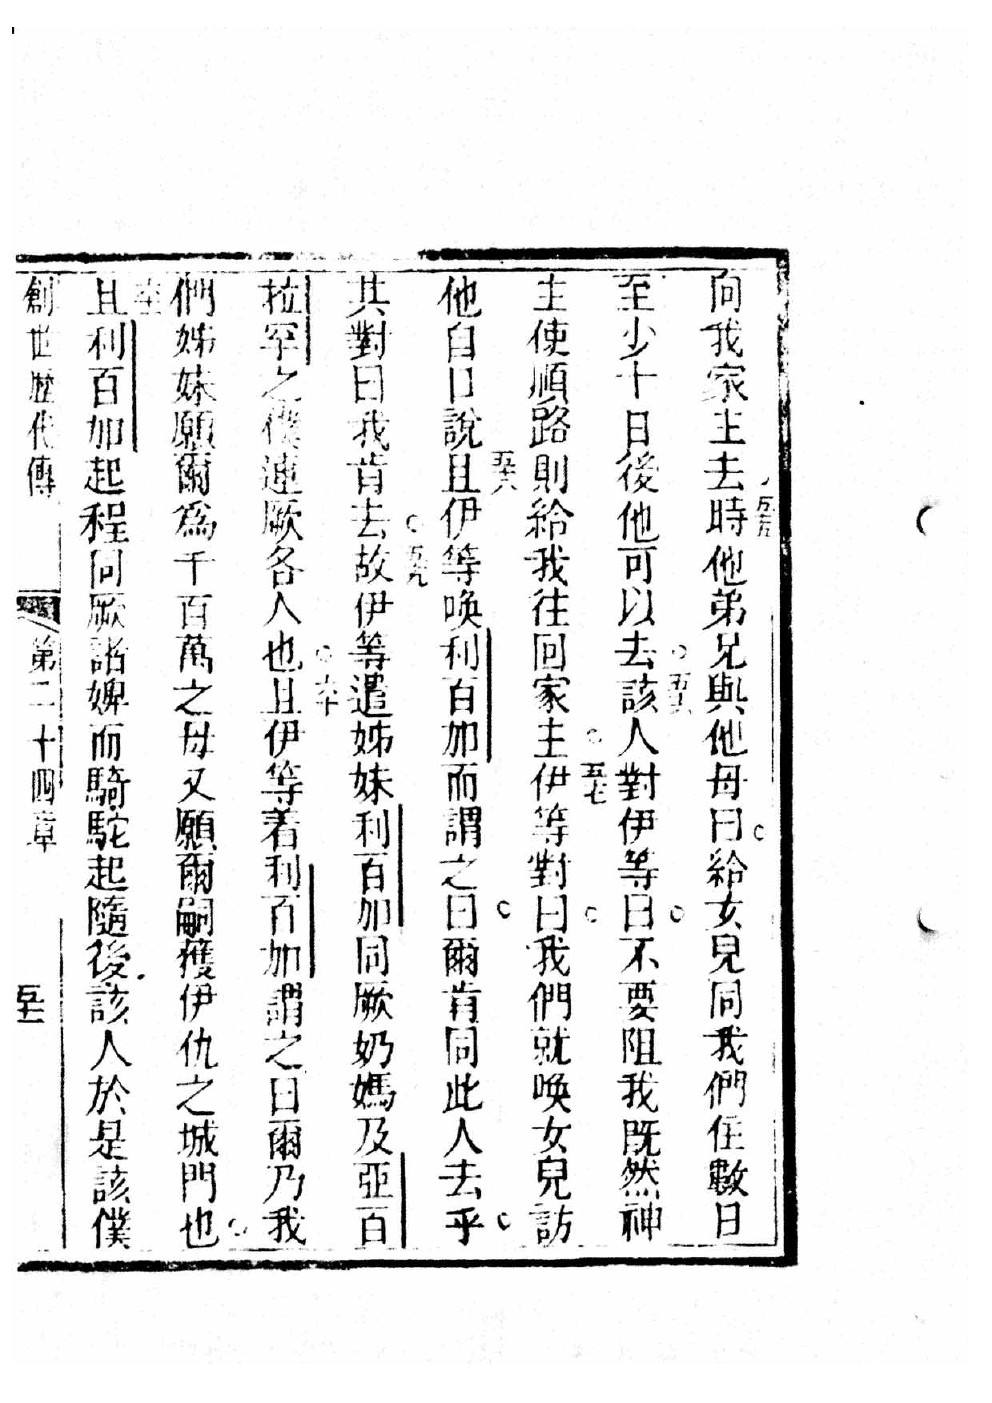 向我家主去時他弟兄與他母曰給女兒同我們住數日
至少十日後他可以去該人對伊等曰不要阻我既然神
主使順路則給我往回家主伊等對曰我們就喚女兒訪
他自口說且伊等喚利百加而謂之曰爾肯同此人去乎
其對曰我肯去故伊等遣姊妹利百加同厥奶媽及亞百
拉罕之僕連厥各人也且伊等着利百加謂之曰爾乃我
們姊妹願爾為千百萬之母又願爾嗣獲伊仇之城門也
且利百加起程同厥諸婢而騎駝起隨後該人於是該僕
創世歷代傳 第二十四章 五十一